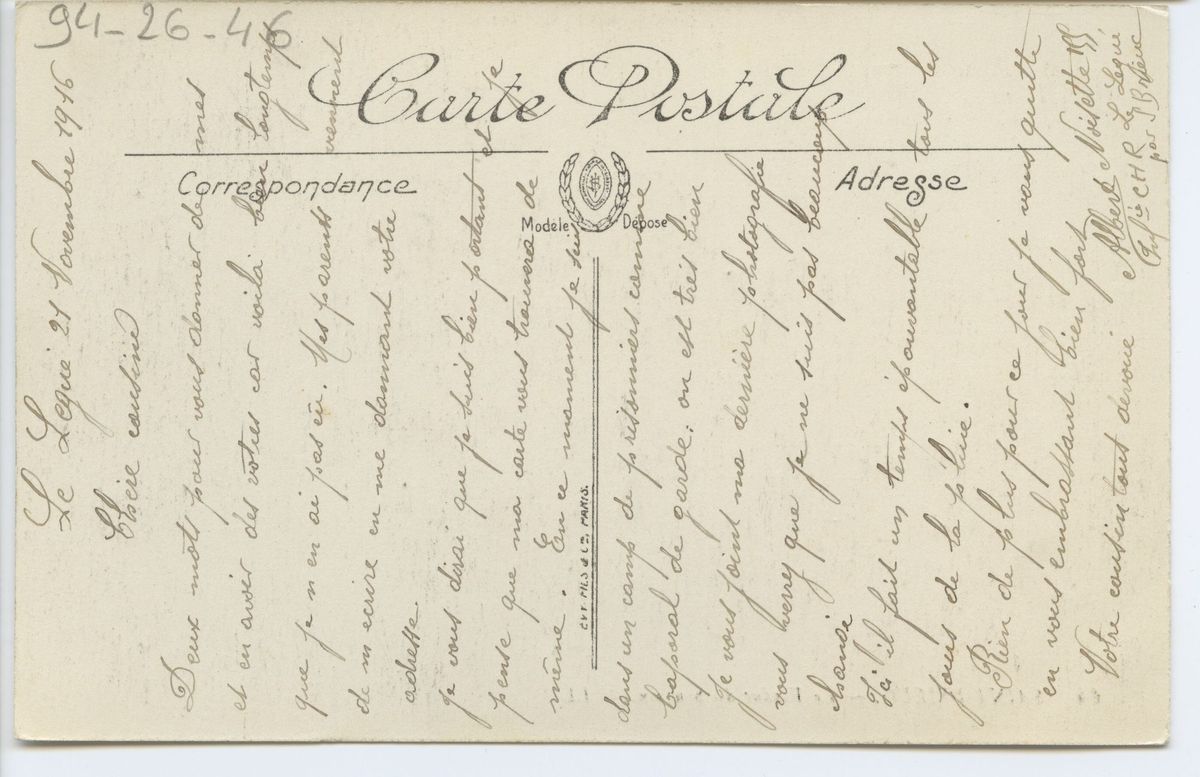 94-26-46
Carte Postale
Correspondance
Adresse
Modèle Déposé
CUT FILS & Cie PARIS.
Le Legué 21 Novembre 1916
Chère cousine
Deux mots pour vous donner de mes
et en avoir des votres car voilà bien longtemps
que je n'en ai pas eu. Mes parents viennent
de m'ecrire en me donnant votre
adresse.
Je vous dirai que je suis bien portant et je
pense que ma carte vous trouvera de
même. En ce moment je suis
dans un camp de prisonniers comme
Caporal de garde. on est très bien
Je vous joint ma dernière photografie
vous verrez que je ne suis pas beaucoup
changé
Ici il fait un temps épouvantable tous les
jours de la pluie.
Rien de plus pour ce jour je vous quitte
en vous embrassant bien fort
Votre cousin tout devoué
Albert Noisette 155
CHR Le Legué
par St Brieuc